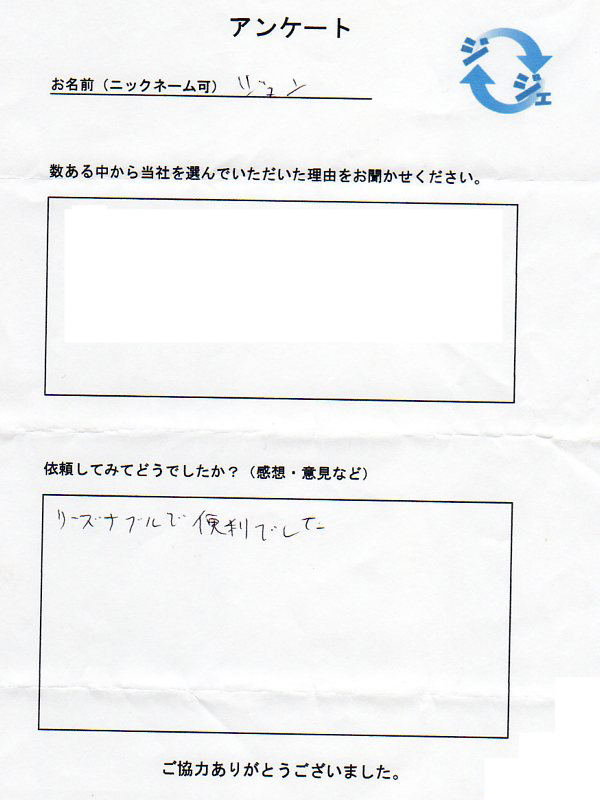 アンケート
ジジェ
お名前（ニックネーム可） ジェン
数ある中から当社を選んでいただいた理由をお聞かせください。
依頼してみてどうでしたか？（感想・意見など）
リーズナブルで便利でした
ご協力ありがとうございました。